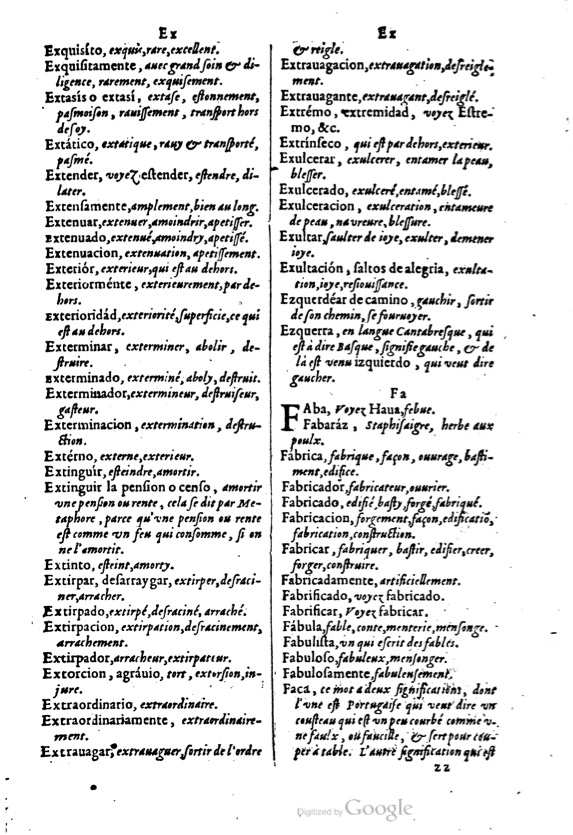 Ex
Exquisíto, exquis, rare, excellent.
Exquiſitamente, auec grand ſoin & di-
ligence, rarement, exquiſement.
Extasis o extasí, extaſe, eſtonnement,
paſmoiſon, rauiſſement, tranſport hors
de ſoy.
Extático, extatique, rauy & tranſporté,
paſmé.
Extender, voyez eſtender, eſtendre, di-
later.
Extenſamente, amplement, bien au long.
Extenuar, extenuer, amoindrir, apetiſſer.
Extenuado, extenué, amoindry, apetiſſé.
Extenuacion, extenuation, apetiſſement.
Exteriór, exterieur, qui eſt au dehors.
Exteriorménte, exterieurement, par de-
hors.
Exterioridád, exteriorité, ſuperficie, ce qui
eſt au dehors.
Exterminar, exterminer, abolir, de-
ſtruire.
Exterminado, exterminé, aboly, deſtruit.
Exterminador, extermineur, deſtruiſeur,
gaſteur.
Exterminacion, extermination, deſtru-
ction.
Extérno, externe, exterieur.
Extinguír, eſteindre, amortir.
Extinguir la penſion o cenſo, amortir
vne penſion ou rente, cela ſe dit par Me-
taphore, parce qu'vne penſion ou rente
eſt comme vn feu qui conſomme, ſi on
ne l'amortit.
Extinto, eſteint, amorty.
Extirpar, deſarraygar, extirper, deſraci-
ner, arracher.
Extirpado, extirpé, deſraciné, arraché.
Extirpacion, extirpation, deſracinement,
arrachement.
Extirpadór, arracheur, extirpateur.
Extorcion, agráuio, tort, extorſion, in-
jure.
Extraordinario, extraordinaire.
Extraordinariamente, extraordinaire-
ment.
Extrauagar, extrauaguer, ſortir de l'ordre
Ex
& reigle.
Extrauagacion, extrauagation, deſreigle-
ment.
Extrauagante, extrauagant, deſreiglé.
Extrémo, extremidad, voyez Eſtre-
mo, &c.
Extrínſeco, qui eſt par dehors, exterieur.
Exulcerar, exulcerer, entamer la peau,
bleſſer.
Exulcerado, exulceré, entamé, bleſſé.
Exulceracion, exulceration, entameure
de peau, navreure, bleſſure.
Exultar, ſaulter de ioye, exulter, demener
ioye.
Exultación, ſaltos de alegria, exulta-
tion, ioye, reſiouiſſance.
Ezquerdéar de camino, gauchir, ſortir
de ſon chemin, ſe fouruoyer.
Ezquerra, en langue Cantabreſque, qui
eſt à dire Baſque, ſignifie gauche, & de
là eſt venu izquierdo, qui veut dire
gaucher.
Fa
FAba, Voyez Haua, febue.
Fabaráz, Staphiſaigre, herbe aux
poulx.
Fábrica, fabrique, façon, ouurage, baſti-
ment, edifice.
Fabricador, fabricateur, ouurier.
Fabricado, edifié, baſty, forgé, fabriqué.
Fabricacion, forgement, façon, edificatiõ,
fabrication, conſtruction.
Fabricar, fabriquer, baſtir, edifier, creer,
forger, conſtruire.
Fabricadamente, artificiellement.
Fabrificado, voyez fabricado.
Fabrificar, Voyez fabricar.
Fábula, fable, conte, menterie, menſonge.
Fabuliſta, vn qui eſcrit des fables.
Fabuloſo, fabuleux, menſonger.
Fabuloſamente, fabuleuſement.
Faca, ce mot a deux ſignifications, dont
l'vne eſt Portugaiſe qui veut dire vn
couſteau qui eſt vn peu courbé comme v-
ne faulx, ou faucille, & ſert pour cou-
per à table. L'autre ſignification qui eſt
zz
Digitized by Google